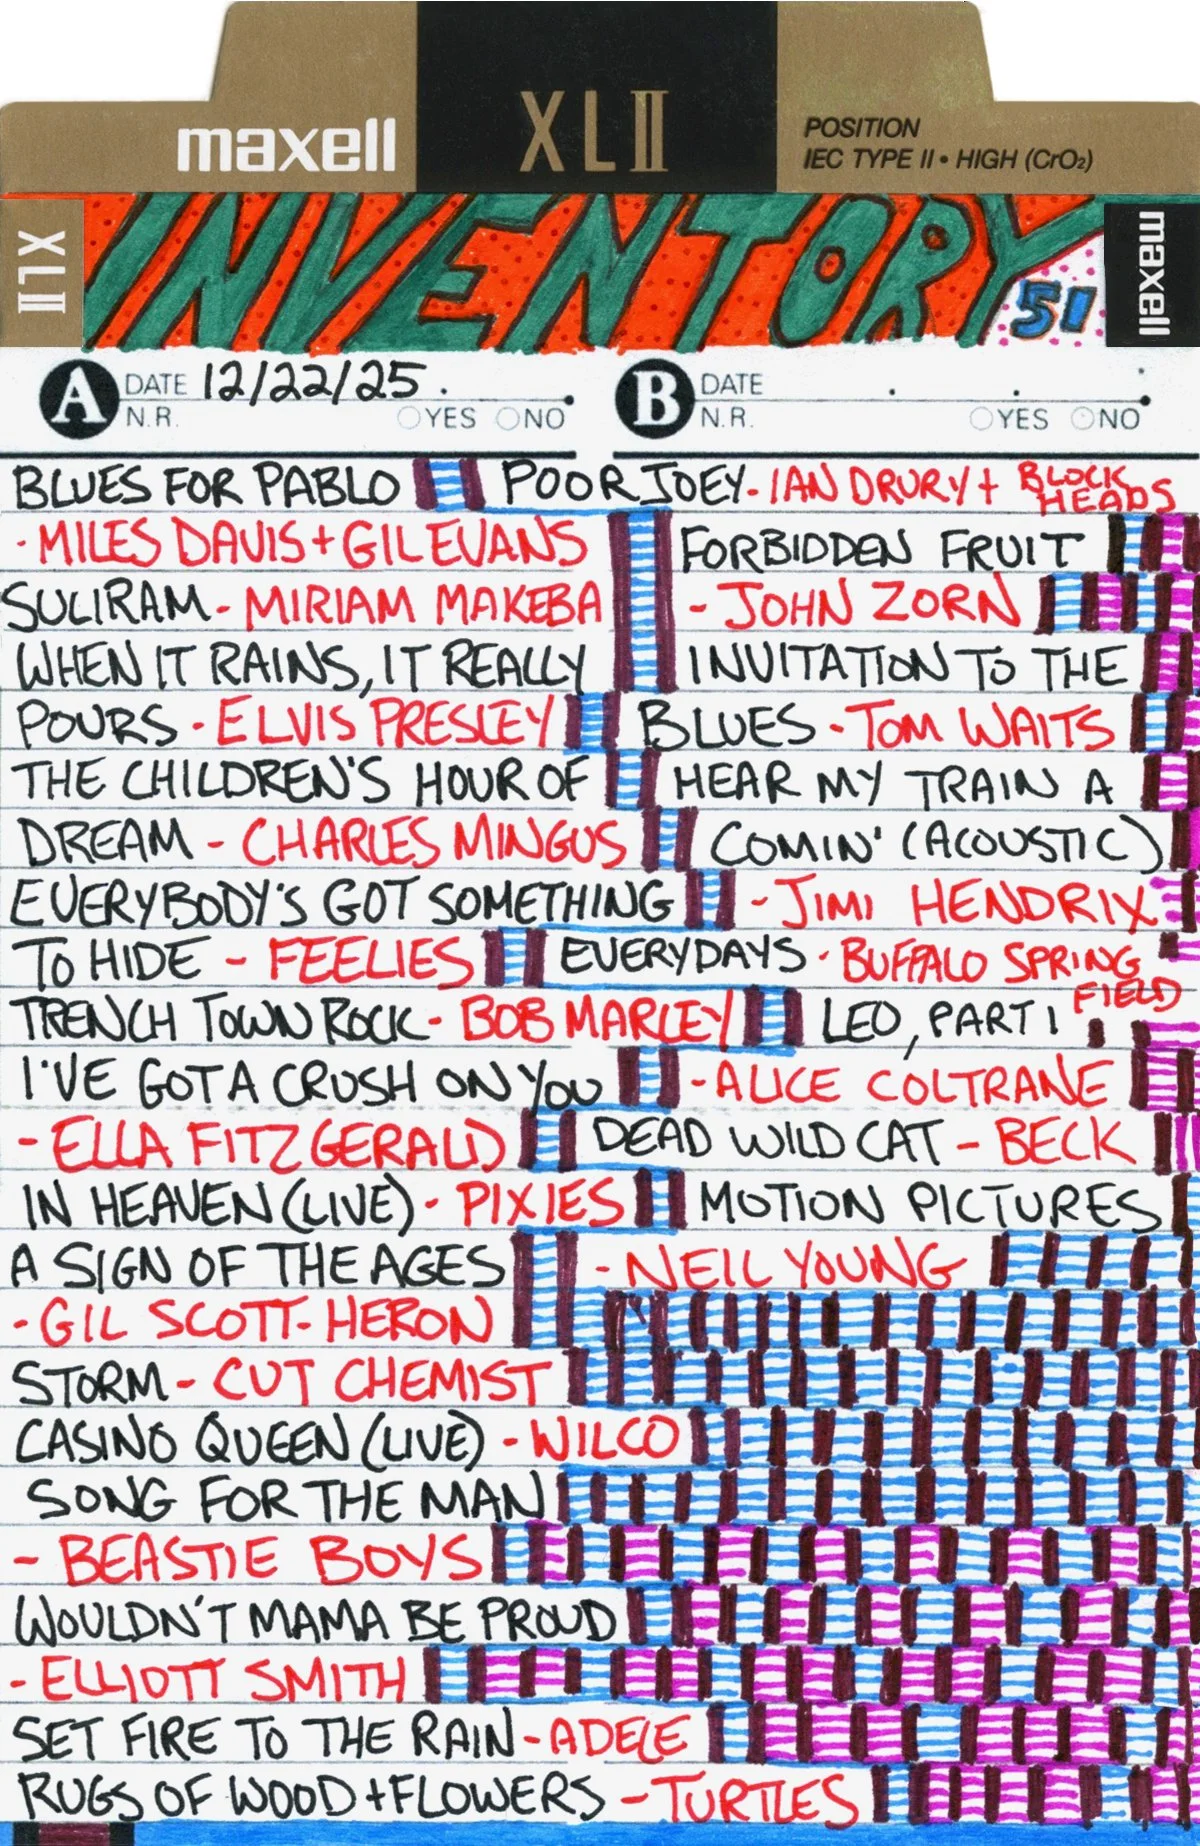 maxell
XLII
POSITION
IEC TYPE II • HIGH (CrO₂)
XLII
INVENTORY
51
maxell
A DATE 12/22/25.
N.R. YES NO
B DATE
N.R. YES NO
BLUES FOR PABLO
- MILES DAVIS + GIL EVANS
SULIRAM - MIRIAM MAKEBA
WHEN IT RAINS, IT REALLY
POURS - ELVIS PRESLEY
THE CHILDREN'S HOUR OF
DREAM - CHARLES MINGUS
EVERYBODY'S GOT SOMETHING
TO HIDE - FEELIES
TRENCH TOWN ROCK - BOB MARLEY
I'VE GOT A CRUSH ON YOU
- ELLA FITZGERALD
IN HEAVEN (LIVE) - PIXIES
A SIGN OF THE AGES
- GIL SCOTT-HERON
STORM - CUT CHEMIST
CASINO QUEEN (LIVE) - WILCO
SONG FOR THE MAN
- BEASTIE BOYS
WOULDN'T MAMA BE PROUD
- ELLIOTT SMITH
SET FIRE TO THE RAIN - ADELE
RUGS OF WOOD + FLOWERS - TURTLES
POOR JOEY - IAN DRURY + BLOCK
HEADS
FORBIDDEN FRUIT
- JOHN ZORN
INVITATION TO THE
BLUES - TOM WAITS
HEAR MY TRAIN A
COMIN' (ACOUSTIC)
- JIMI HENDRIX
EVERYDAYS - BUFFALO SPRING
FIELD
LEO, PART 1
- ALICE COLTRANE
DEAD WILD CAT - BECK
MOTION PICTURES
- NEIL YOUNG